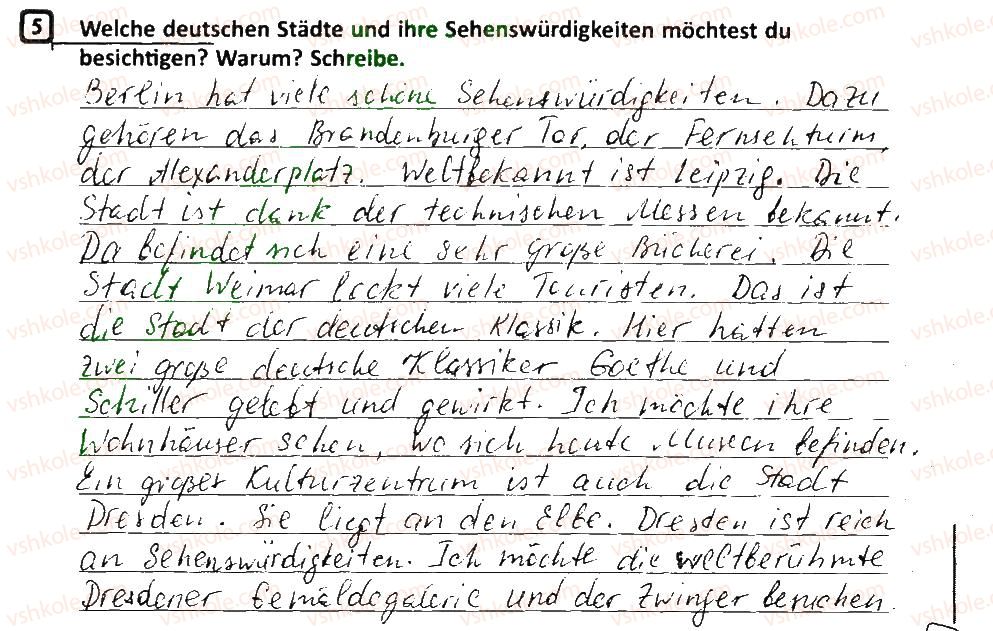 5 Welche deutschen Städte und ihre Sehenswürdigkeiten möchtest du
besichtigen? Warum? Schreibe.
Berlin hat viele schöne Sehenswürdigkeiten. Dazu
gehören das Brandenburger Tor, der Fernsehturm,
der Alexanderplatz. Weltbekannt ist Leipzig. Die
Stadt ist dank der technischen Messen bekannt.
Da befindet sich eine sehr große Bücherei. Die
Stadt Weimar lockt viele Touristen. Das ist
die Stadt der deutschen Klassik. Hier hatten
zwei große deutsche Klassiker Goethe und
Schiller gelebt und gewirkt. Ich möchte ihre
Wohnhäuser sehen, wo sich heute Museen befinden.
Ein großes Kulturzentrum ist auch die Stadt
Dresden. Sie liegt an den Elbe. Dresden ist reich
an Sehenswürdigkeiten. Ich möchte die weltberühmte
Dresdener Gemäldegalerie und der Zwinger besuchen.